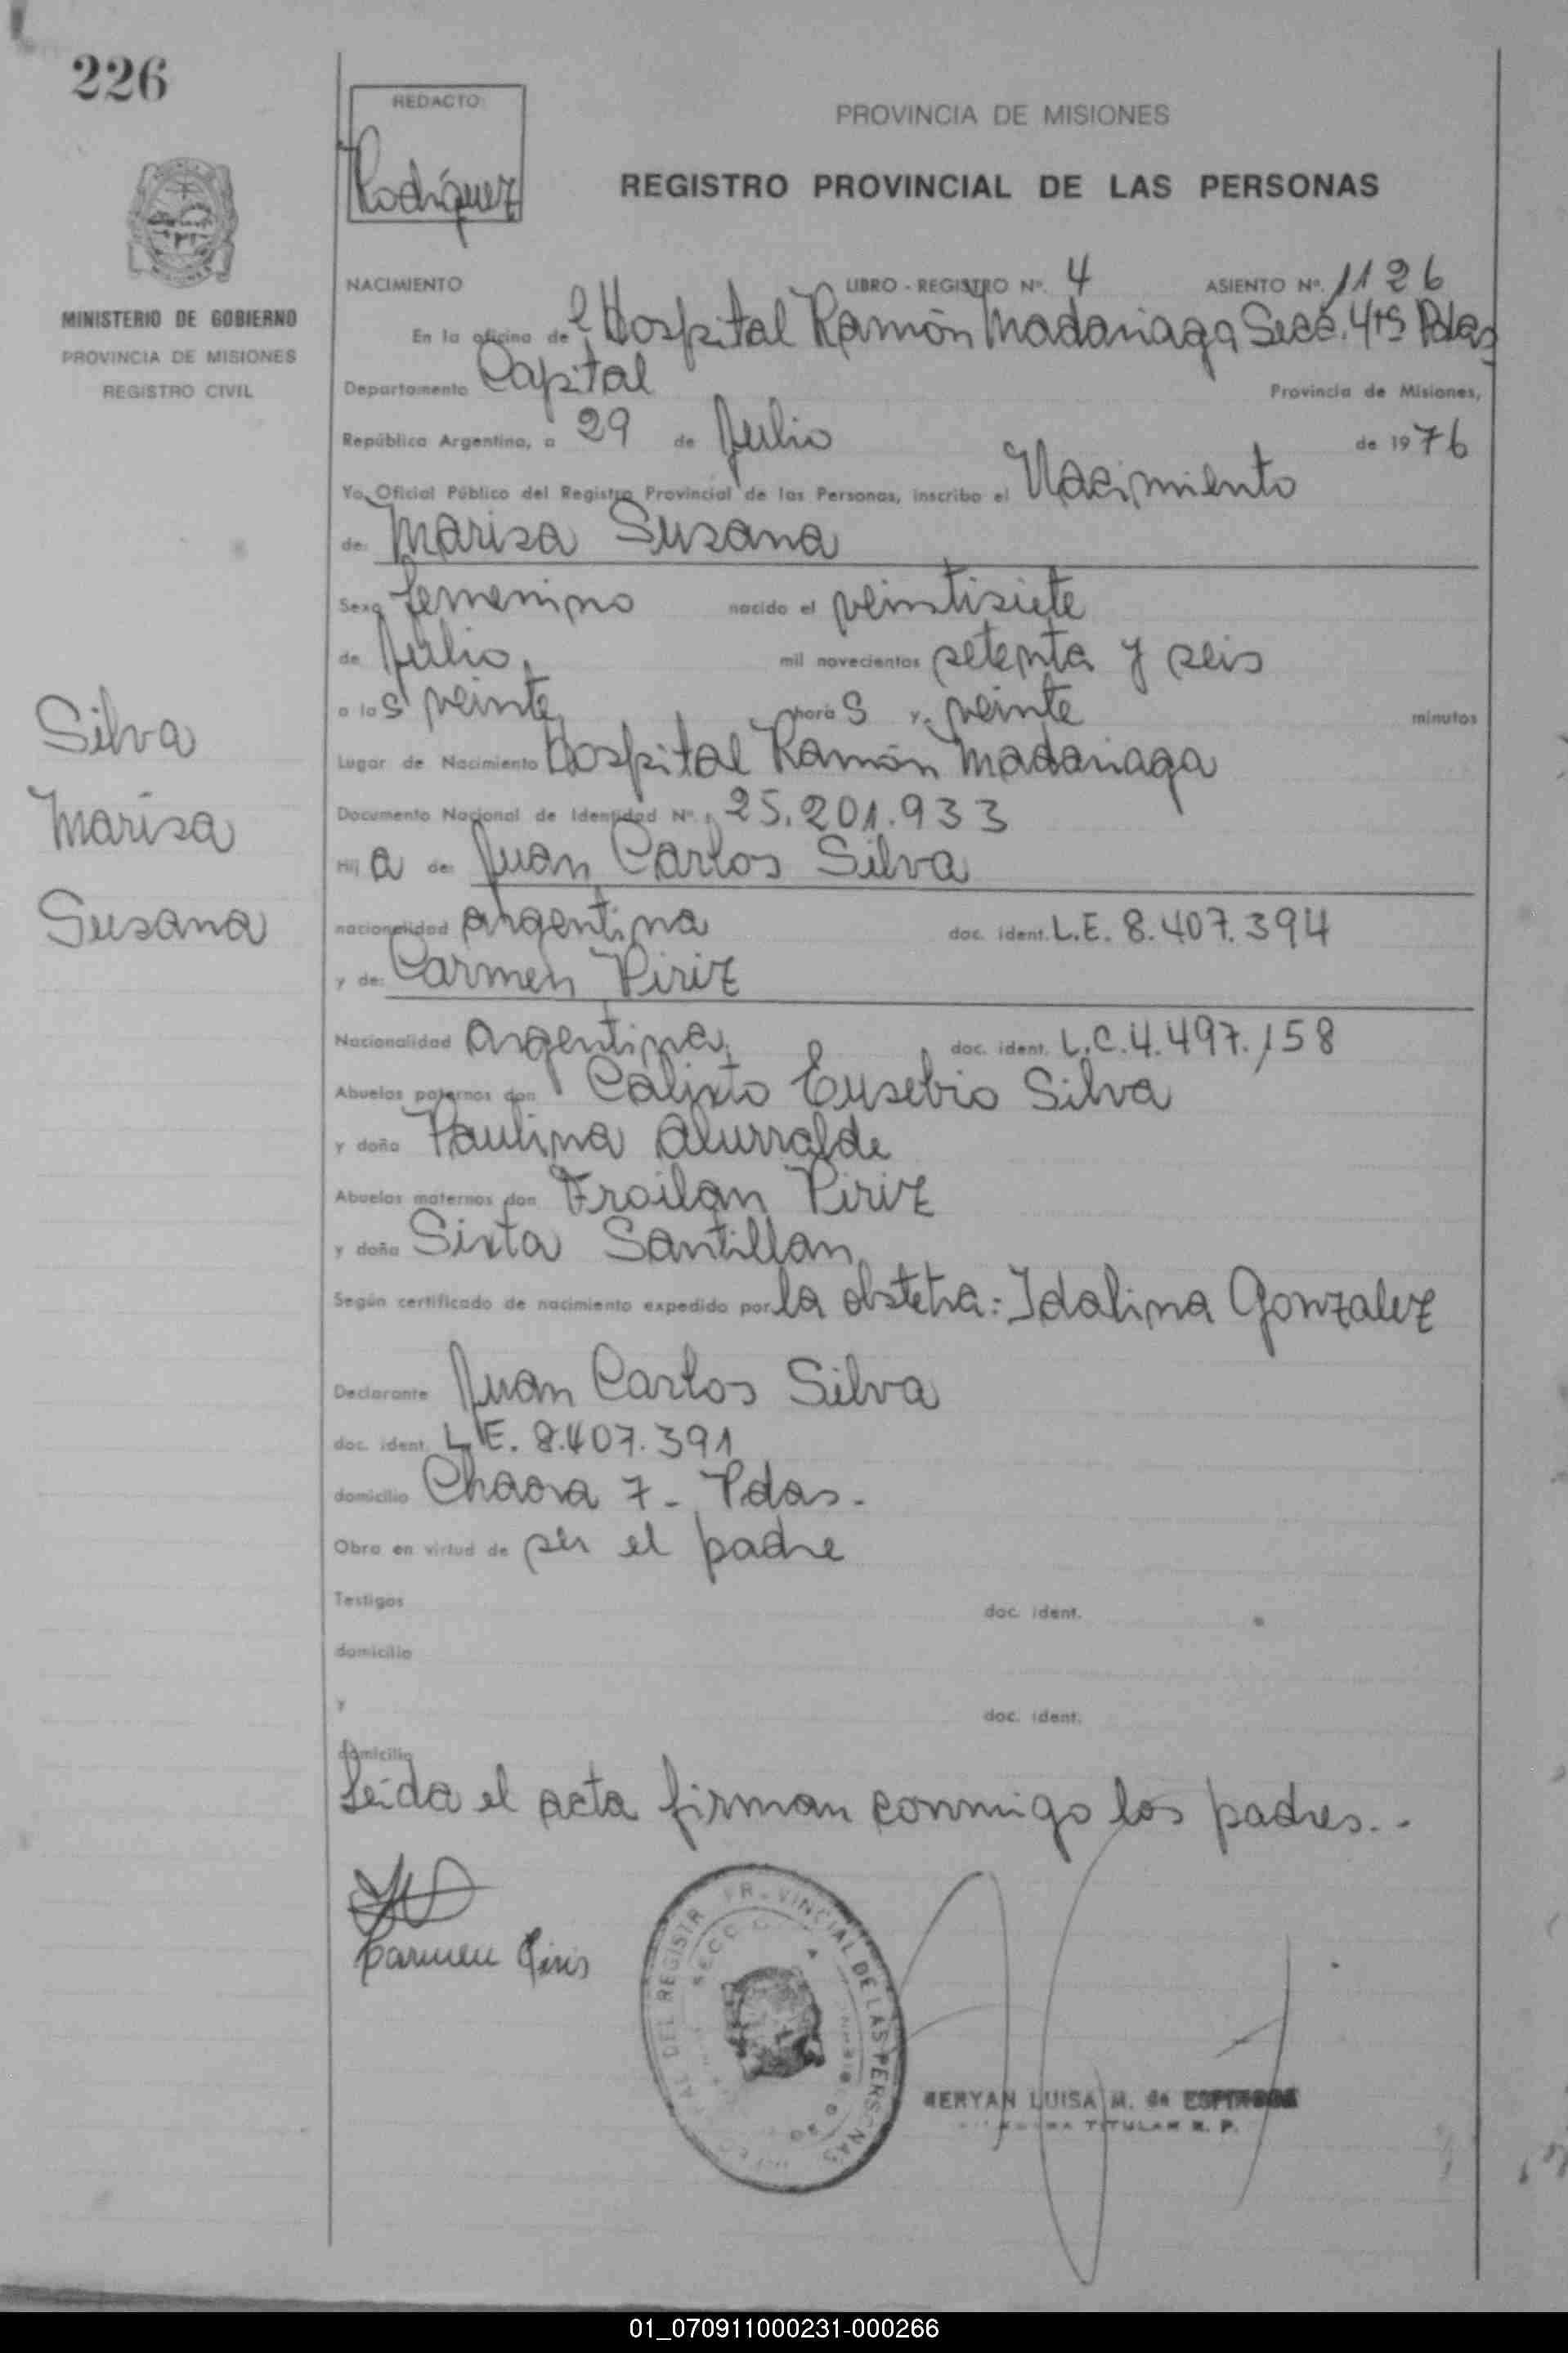 226
REDACTO:
Rodríguez
PROVINCIA DE MISIONES
REGISTRO PROVINCIAL DE LAS PERSONAS
MINISTERIO DE GOBIERNO
PROVINCIA DE MISIONES
REGISTRO CIVIL
NACIMIENTO LIBRO - REGISTRO Nº. 4 ASIENTO Nº. 1126
En la oficina del Hospital Ramón Madariaga Secc. 4ta Pdas
Departamento Capital Provincia de Misiones,
República Argentina, a 29 de Julio de 1976
Yo, Oficial Público del Registro Provincial de las Personas, inscribo el Nacimiento
de: Marisa Susana
Sexo femenino nacido el veintisiete
de Julio, mil novecientos setenta y seis
a las veinte horas y veinte minutos
Lugar de Nacimiento Hospital Ramón Madariaga
Documento Nacional de Identidad Nº. 25.201.933
Hija de: Juan Carlos Silva
nacionalidad argentina doc. ident. L.E. 8.407.394
y de: Carmen Piriz
Nacionalidad argentina, doc. ident. L.C. 4.497.158
Abuelos paternos don Calixto Eusebio Silva
y doña Paulina Alurralde
Abuelos maternos don Froilan Piriz
y doña Sixta Santillan
Según certificado de nacimiento expedido por la obstetra: Idalina Gonzalez
Declarante Juan Carlos Silva
doc. ident. L.E. 8.407.391
domicilio Chacra 7 - Pdas.
Obra en virtud de ser el padre
Testigos doc. ident.
domicilio
y doc. ident.
domicilio
Leída el acta firman conmigo los padres..
Silva
Marisa
Susana
Carmen Piris
DEL REGISTR PR VINCIAL DE LAS PERS NAS
SECC
LUISA M. de
TITULAR R. P.
01_070911000231-000266